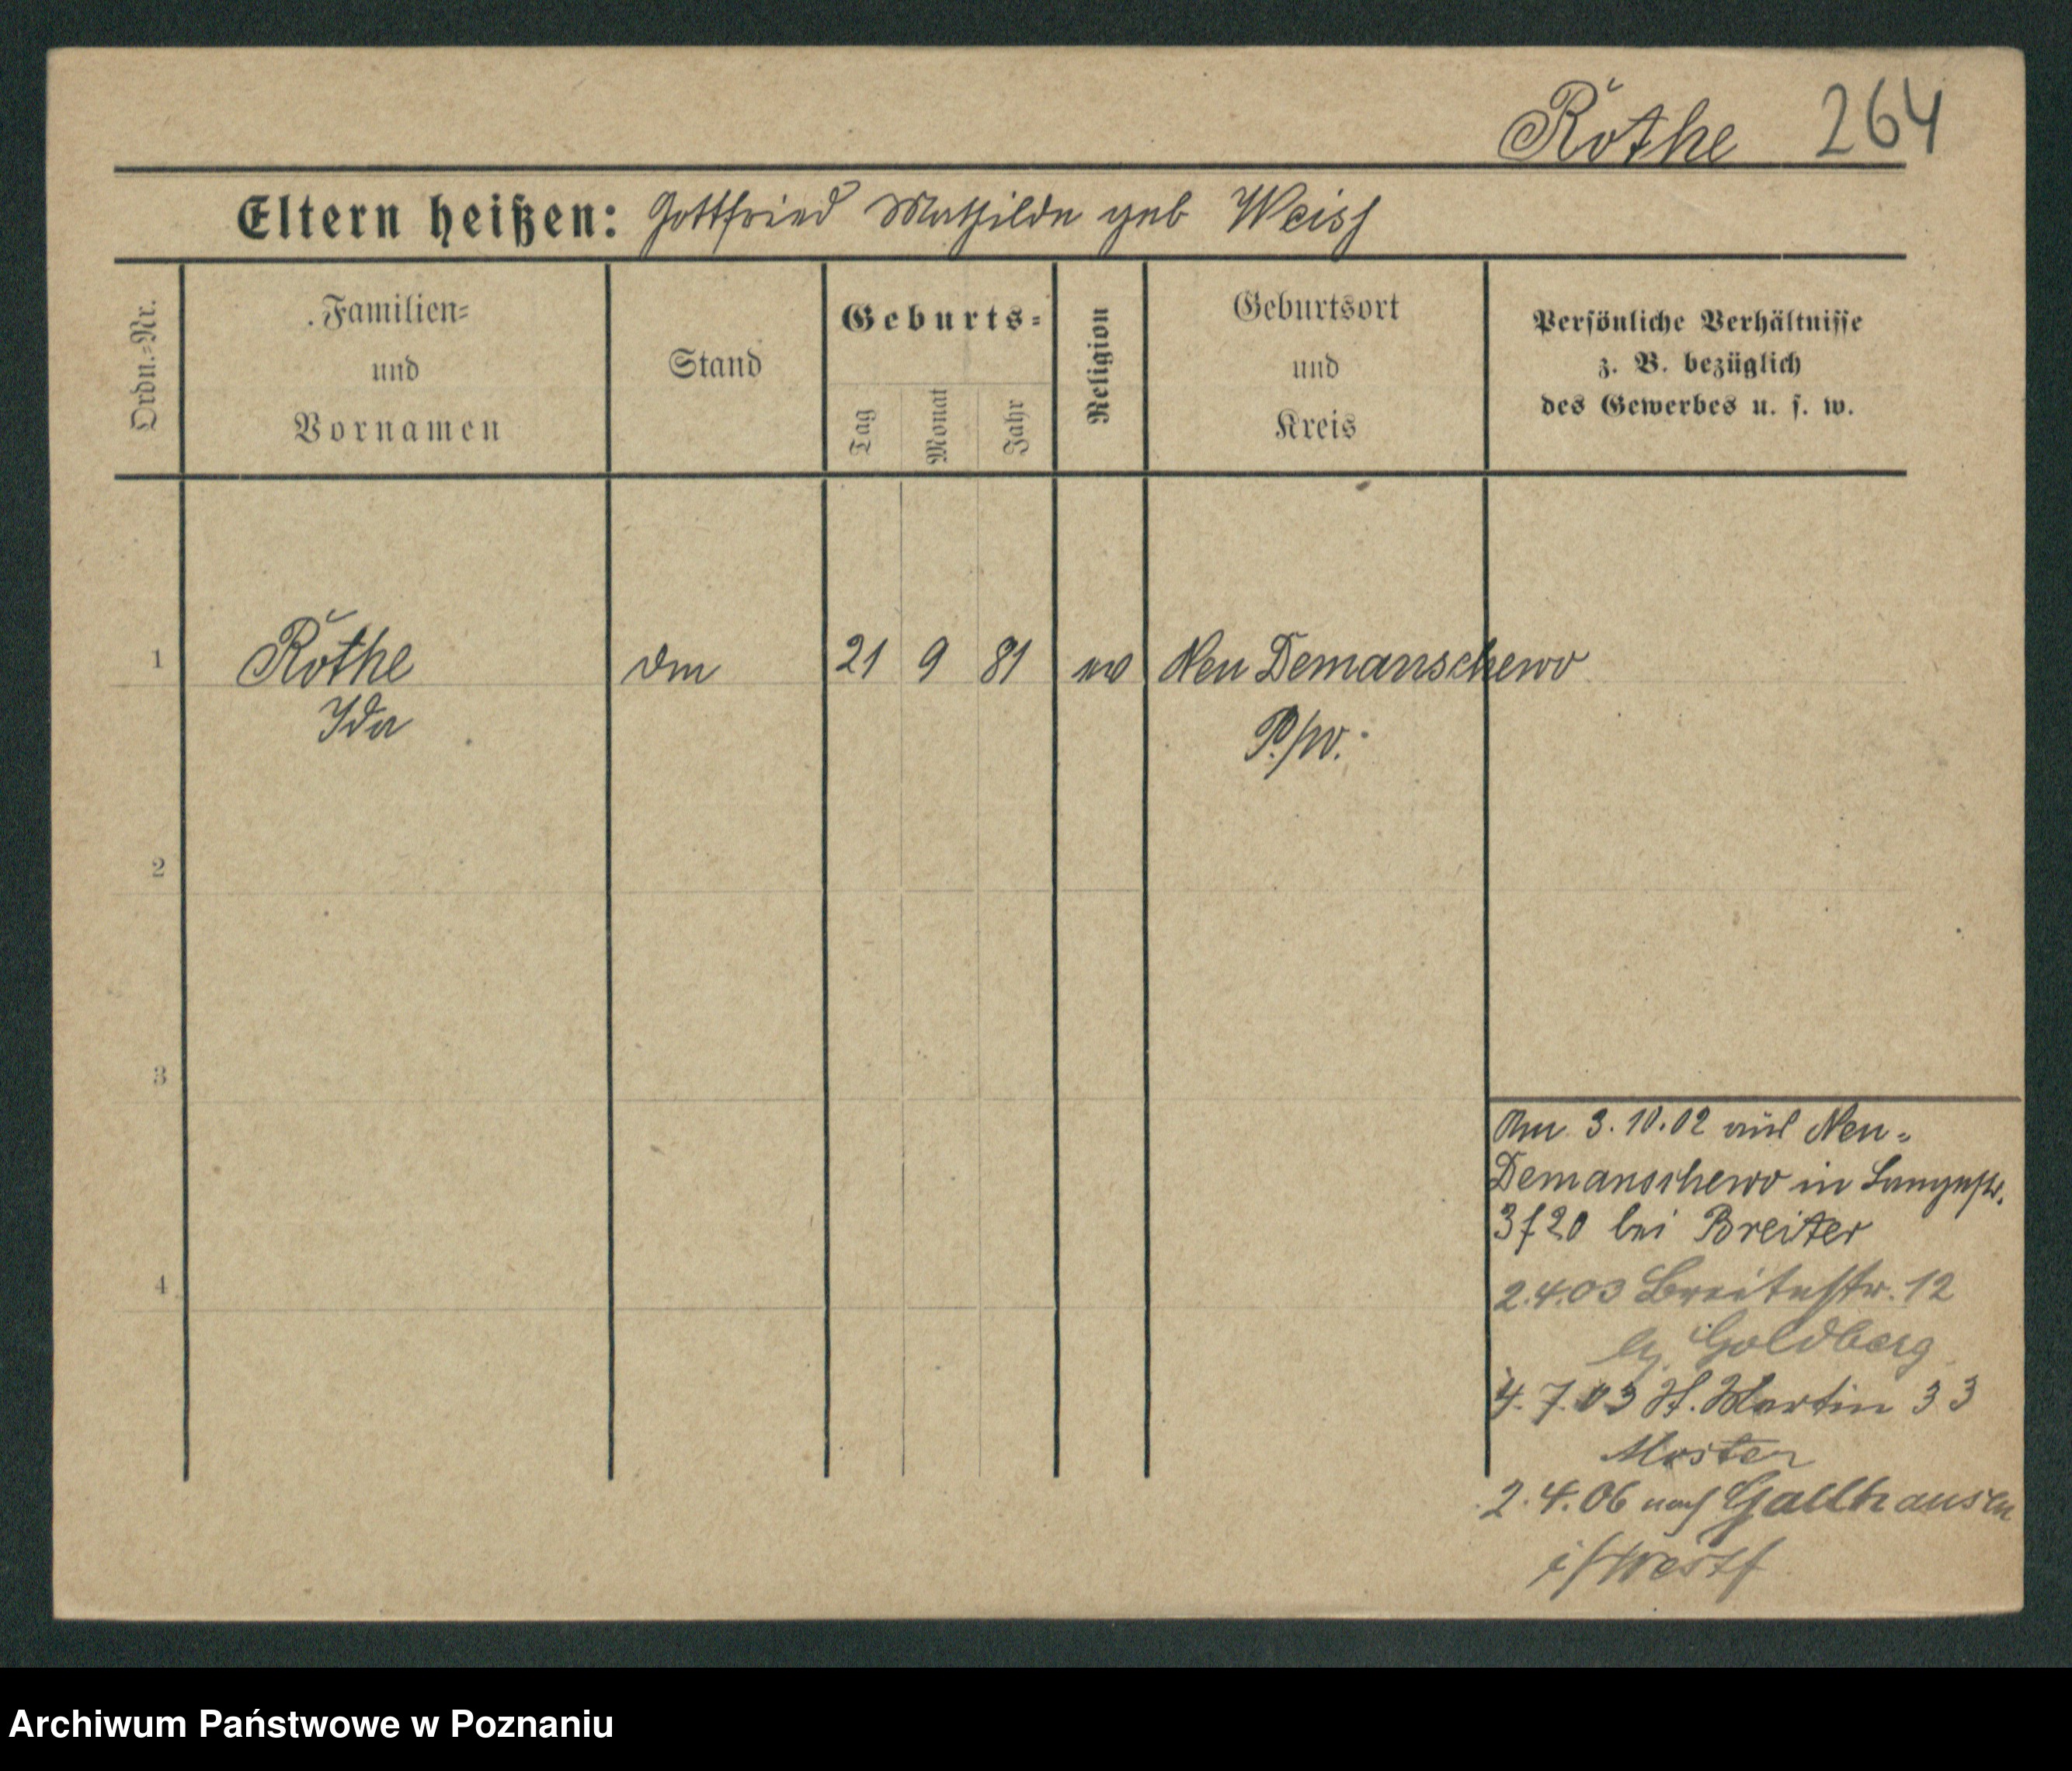 Röthe 264
Eltern heißen: Gottfried Mathilde geb Weiss
Ordn.-Nr.
Familien-
und
Vornamen
Stand
Geburts-
Tag
Monat
Jahr
Religion
Geburtsort
und
Kreis
Persönliche Verhältnisse
z. B. bezüglich
des Gewerbes u. s. w.
1 Röthe 21 9 81 ev Neu Demanschewo
Ida P./W.
2
3
4
Am 3.10.02 aus Neu-
Demanschewo in Langestr.
3f20 bei Breiter
2.4.03 Breitestr. 12
Goldberg
4.7.03 St. Martin 33
Moster
2.4.06 nach Gallhausen
i/Westf
Archiwum Państwowe w Poznaniu